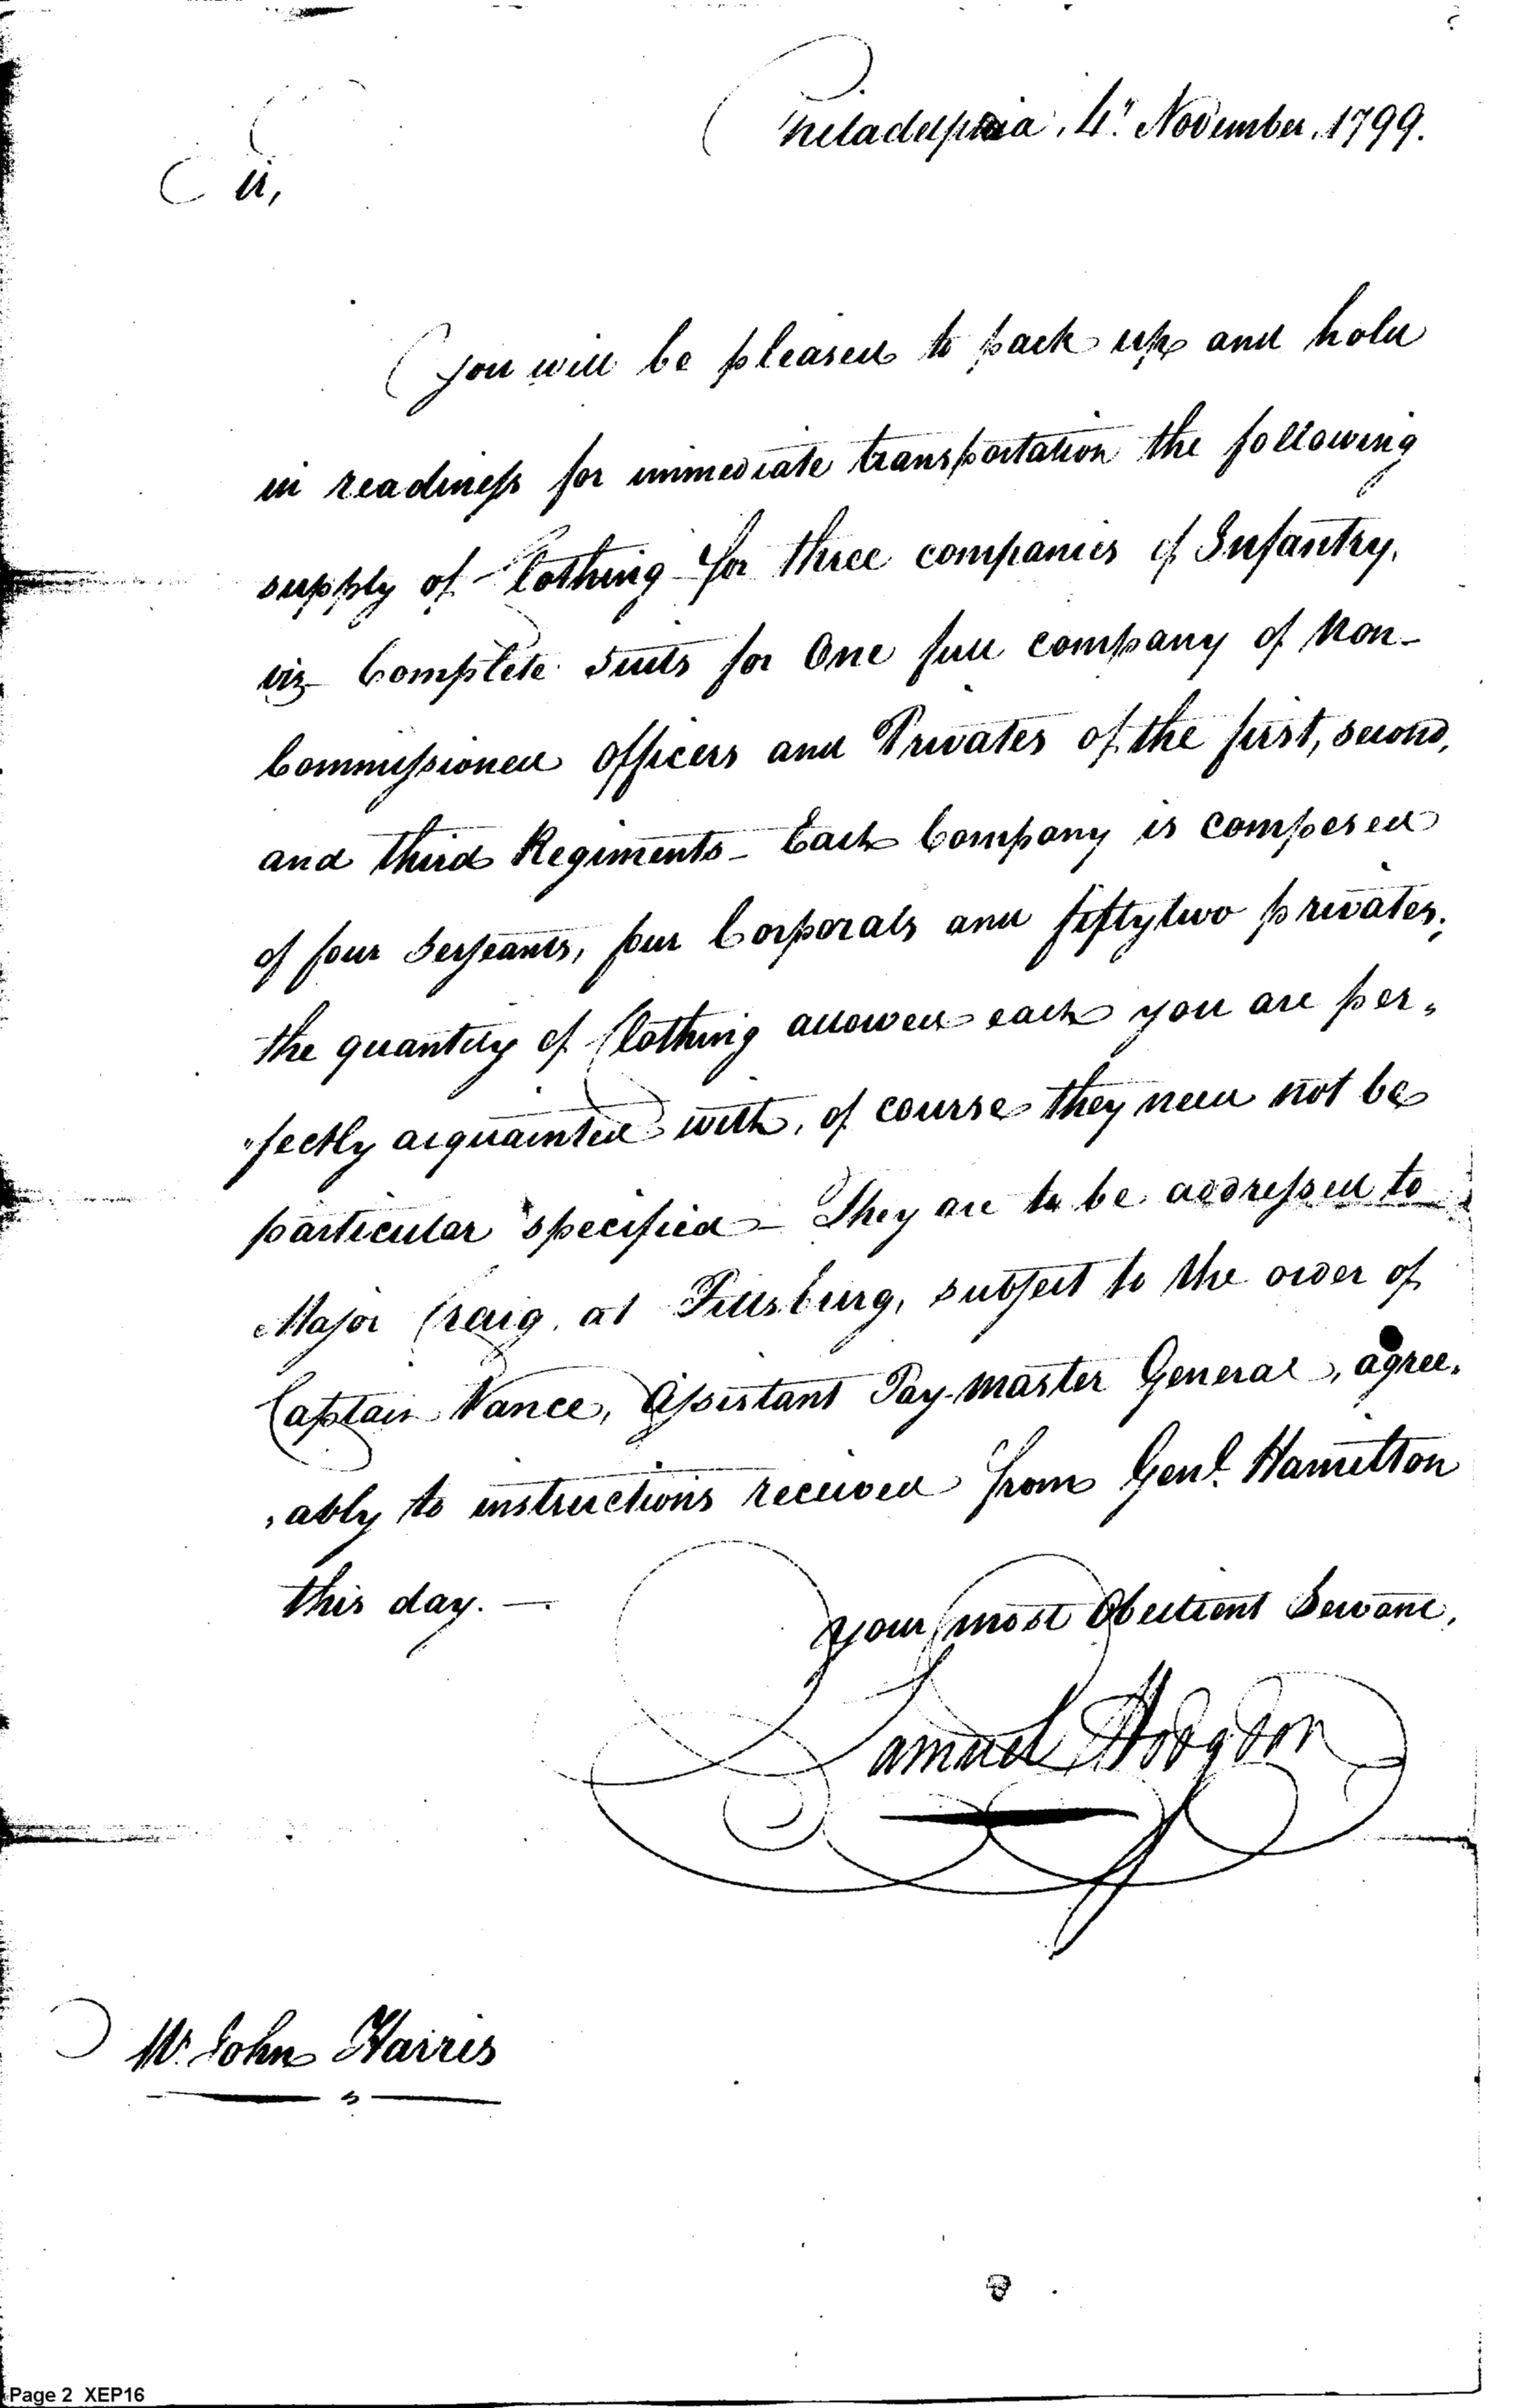 Philadelphia, 4" November, 1799.
Sir,
You will be pleased to pack up and hold
in readiness for immediate transportation the following
supply of Clothing for three companies of Infantry,
viz- Complete Suits for One full company of Non-
Commissioned Officers and Privates of the first, second,
and third Regiments- Each Company is composed
of four Serjeants, four Corporals and fiftytwo privates;
the quantity of Clothing allowed each you are per„
„fectly acquainted with, of course they need not be
particular specified- They are to be addressed to
Major Craig, at Pittsburg, subject to the order of
Captain Vance, Assistant Pay-Master General, agree„
„ably to instructions received from Genl. Hamilton
this day. —
Your most Obedient Servant,
Samuel Hodgdon
Mr. John Harris
Page 2 XEP16